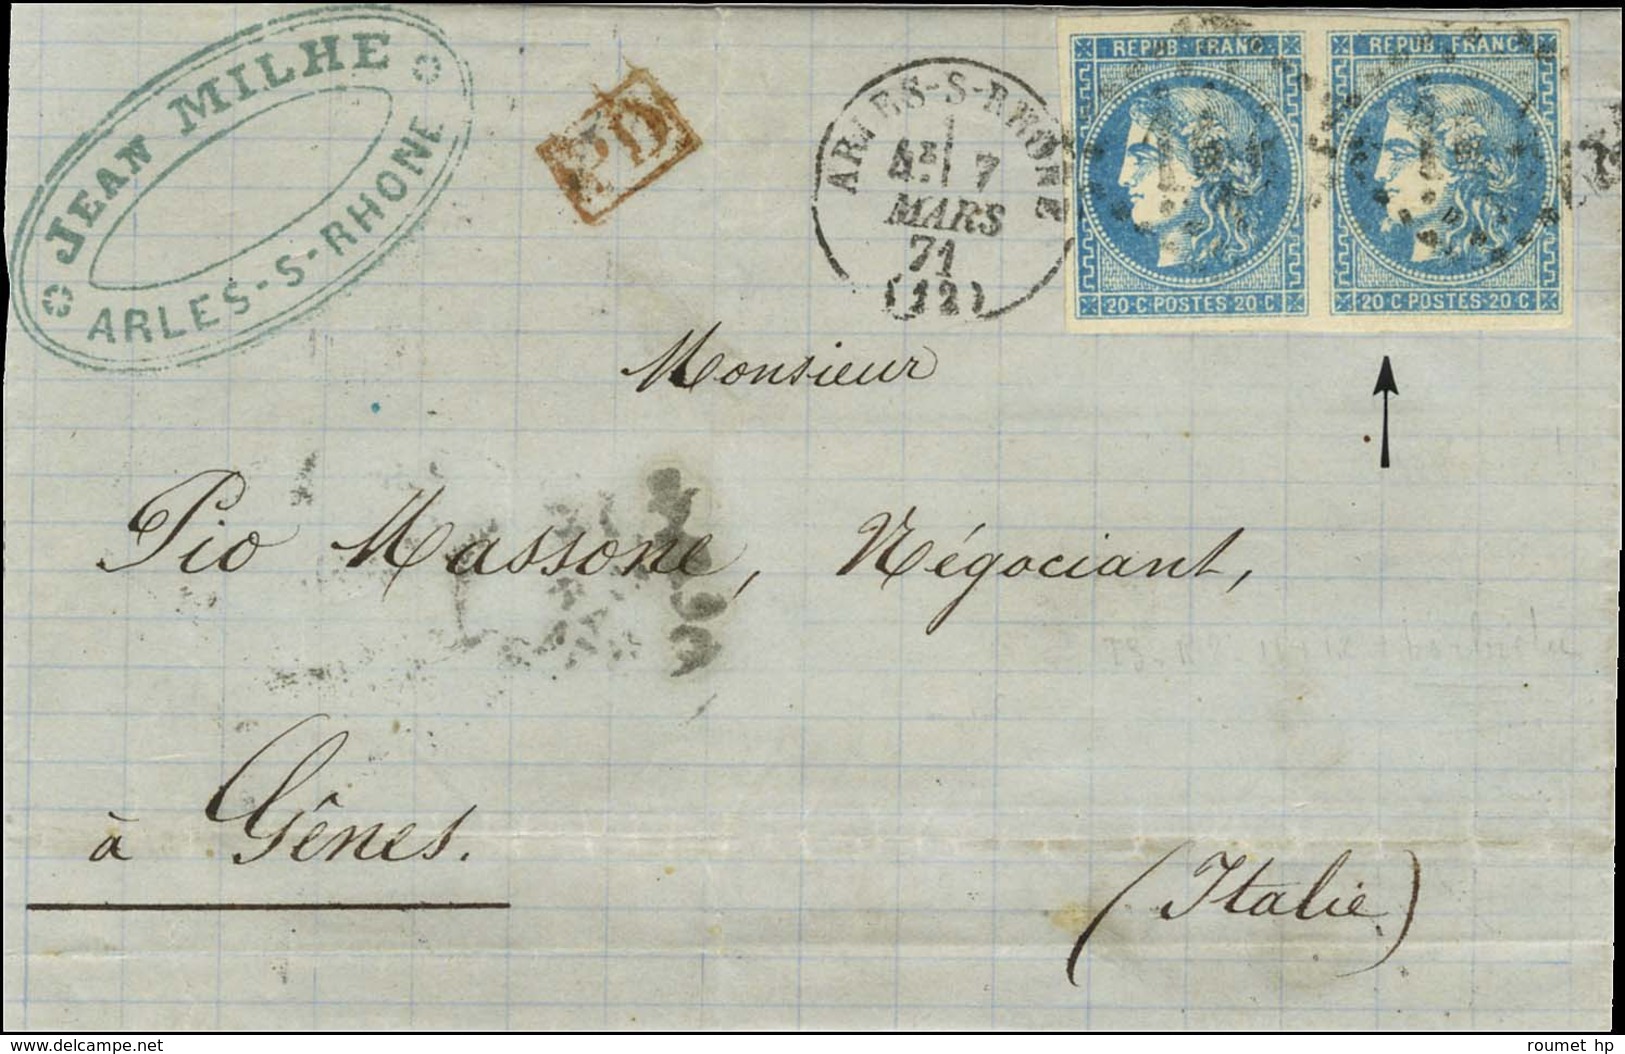 JEAN MILHE
ARLES-S-RHONE
PD
ARLES-S-RHONE
7
MARS
71
(12)
REPUB. FRANC.
20 C. POSTES 20 C
REPUB. FRANC.
20 C. POSTES 20 C
Monsieur
Pio Massone, Négociant,
à Gênes.
(Italie)
roumet hp
www.delcampe.net